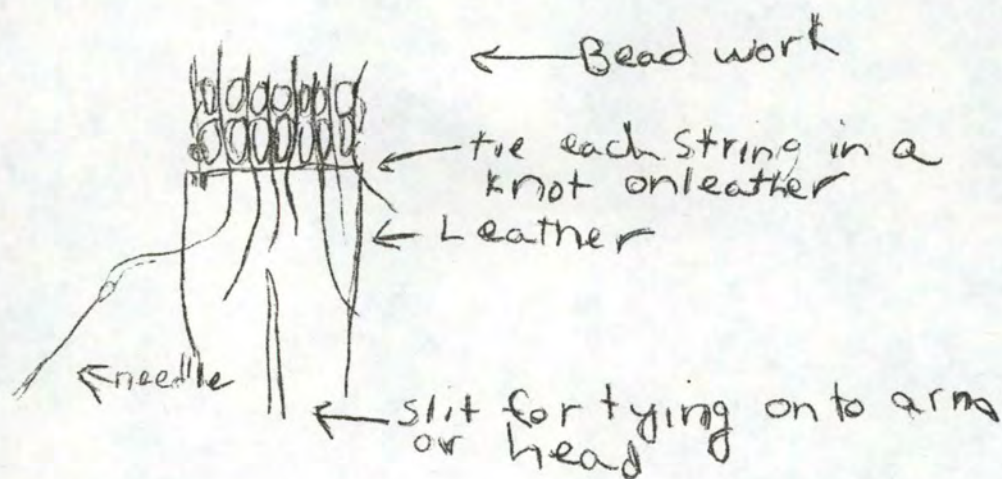 Bead work
tie each string in a
knot onleather
Leather
needle
slit for tying on to arm
or head